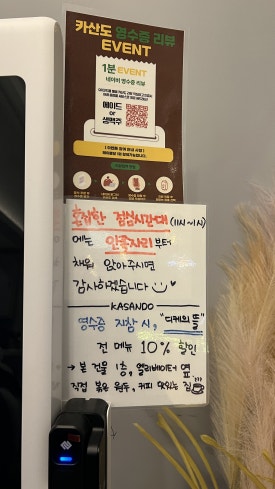 카산도 영수증 리뷰
EVENT
1분 EVENT
네이버 영수증 리뷰
에이드
or
생맥주
혼잡한 점심시간대 (11시~1시)
에는 안쪽자리부터
채워 앉아주시면
감사하겠습니다
KASANDO
영수증 지참 시, "디케의 뜰"
전 메뉴 10% 할인
→ 본 건물 1층, 엘리베이터 옆.
직접 볶은 원두, 커피 맛있는 집